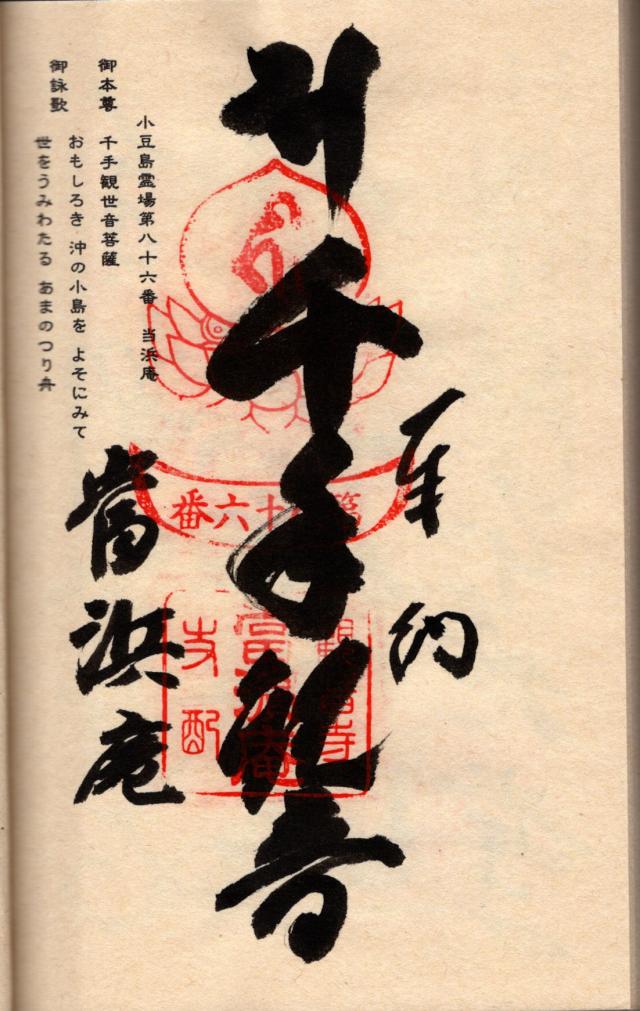 奉納
千手観音
當浜庵
第八十六番
観音寺
當浜庵
支配
小豆島霊場第八十六番 当浜庵
御本尊 千手観世音菩薩
おもしろき 沖の小島を よそにみて
御詠歌
世をうみわたる あまのつり舟